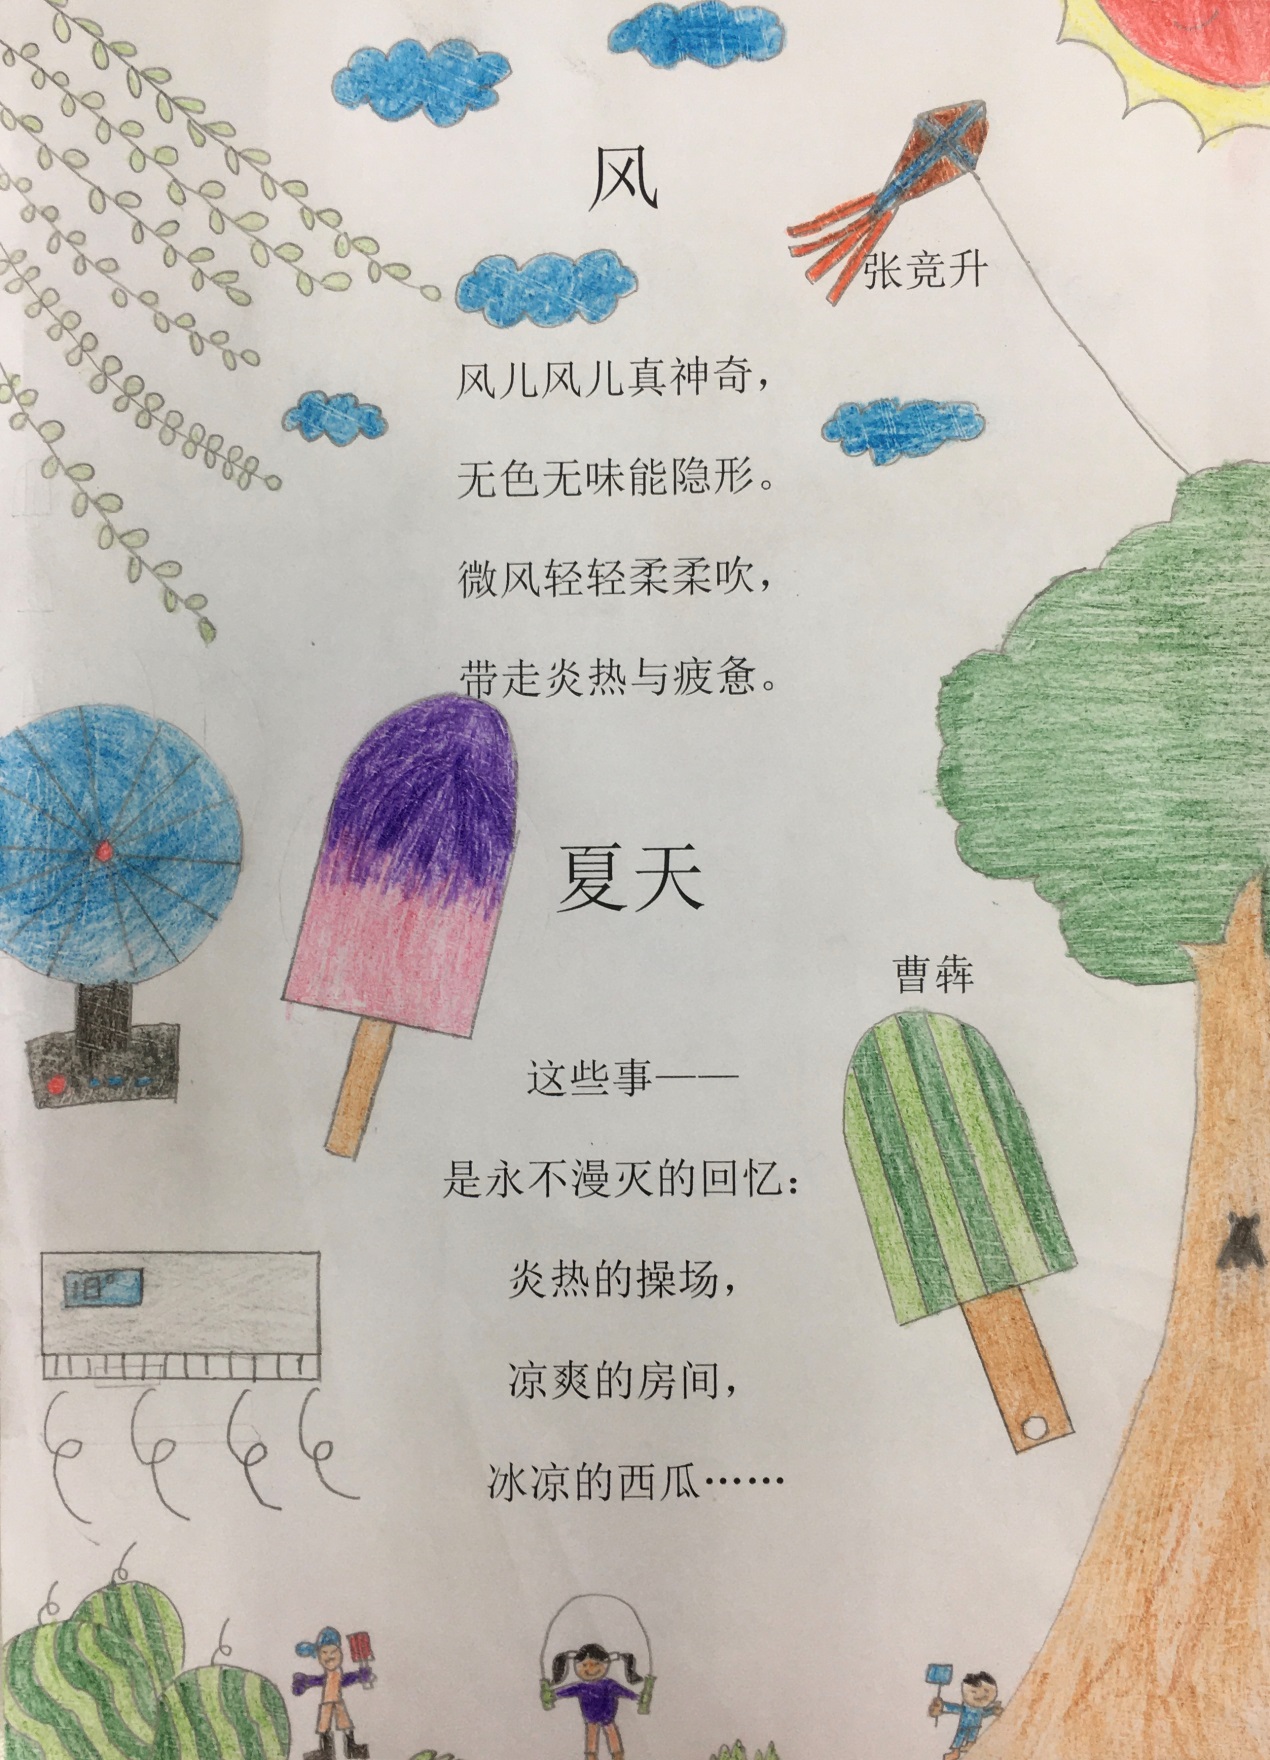 风
张竞升
风儿风儿真神奇，
无色无味能隐形。
微风轻轻柔柔吹，
带走炎热与疲惫。
夏天
曹犇
这些事——
是永不漫灭的回忆：
炎热的操场，
凉爽的房间，
18°
冰凉的西瓜……